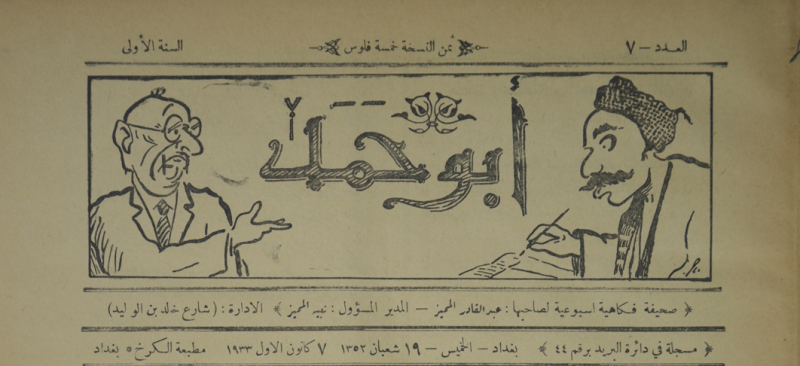 العدد - ٧ ثمن النسخة خمسة فلوس السنة الأولى
أبو حمد
﴿ صحيفة فكاهية اسبوعية لصاحبها : عبدالقادر المميز - المدير المسؤول : نبيه المميز ﴾ الادارة : ( شارع خلد بن الوليد )
﴿ مسجلة في دائرة البريد برقم ٤٤ ﴾ بغداد - الخميس - ١٩ شعبان ١٣٥٢ ٧ كانون الاول ١٩٣٣ مطبعة الكرخ * بغداد